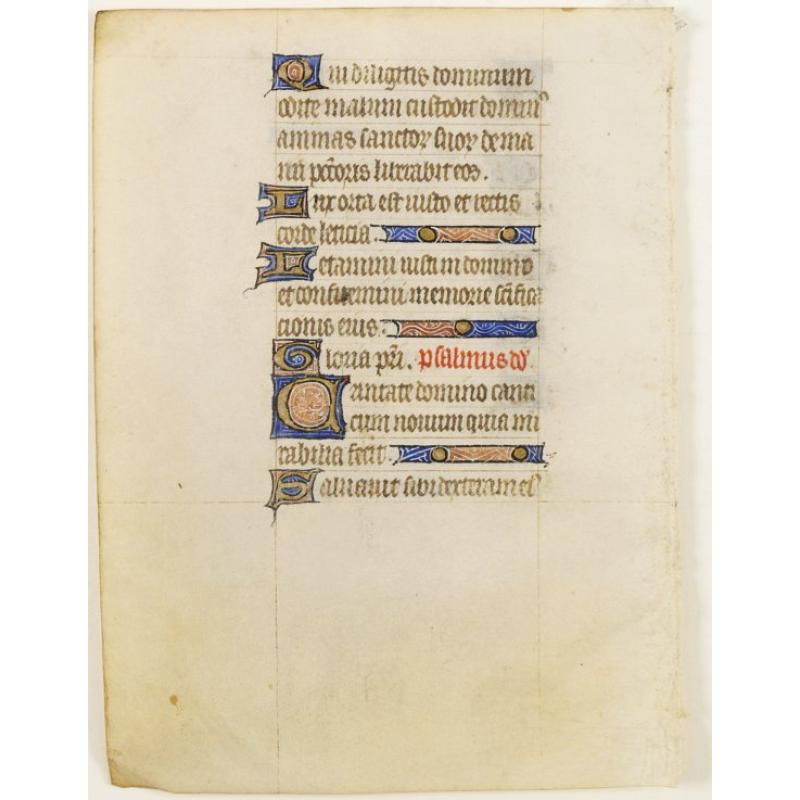 Qui diligitis dominum
odite malum custodit domin⁹
animas sanctoꝝ suoꝝ de ma
nu pctoris liberabit eos.
Lux orta est iusto et rectis
corde leticia.
Letamini iusti in domino
et confitemini memorie scifica
cionis eius.
Gloria pri. psalmus dd
Cantate domino canti
cum nouum quia mi
rabilia fecit.
Saluauit sibi dextera mei⁹